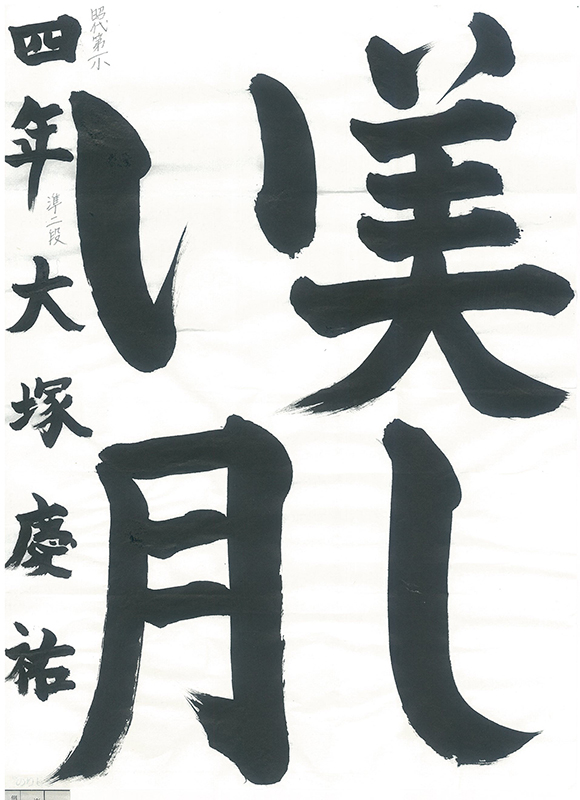 美し
い月
四年 大塚慶祐
昭代第一小
準二段